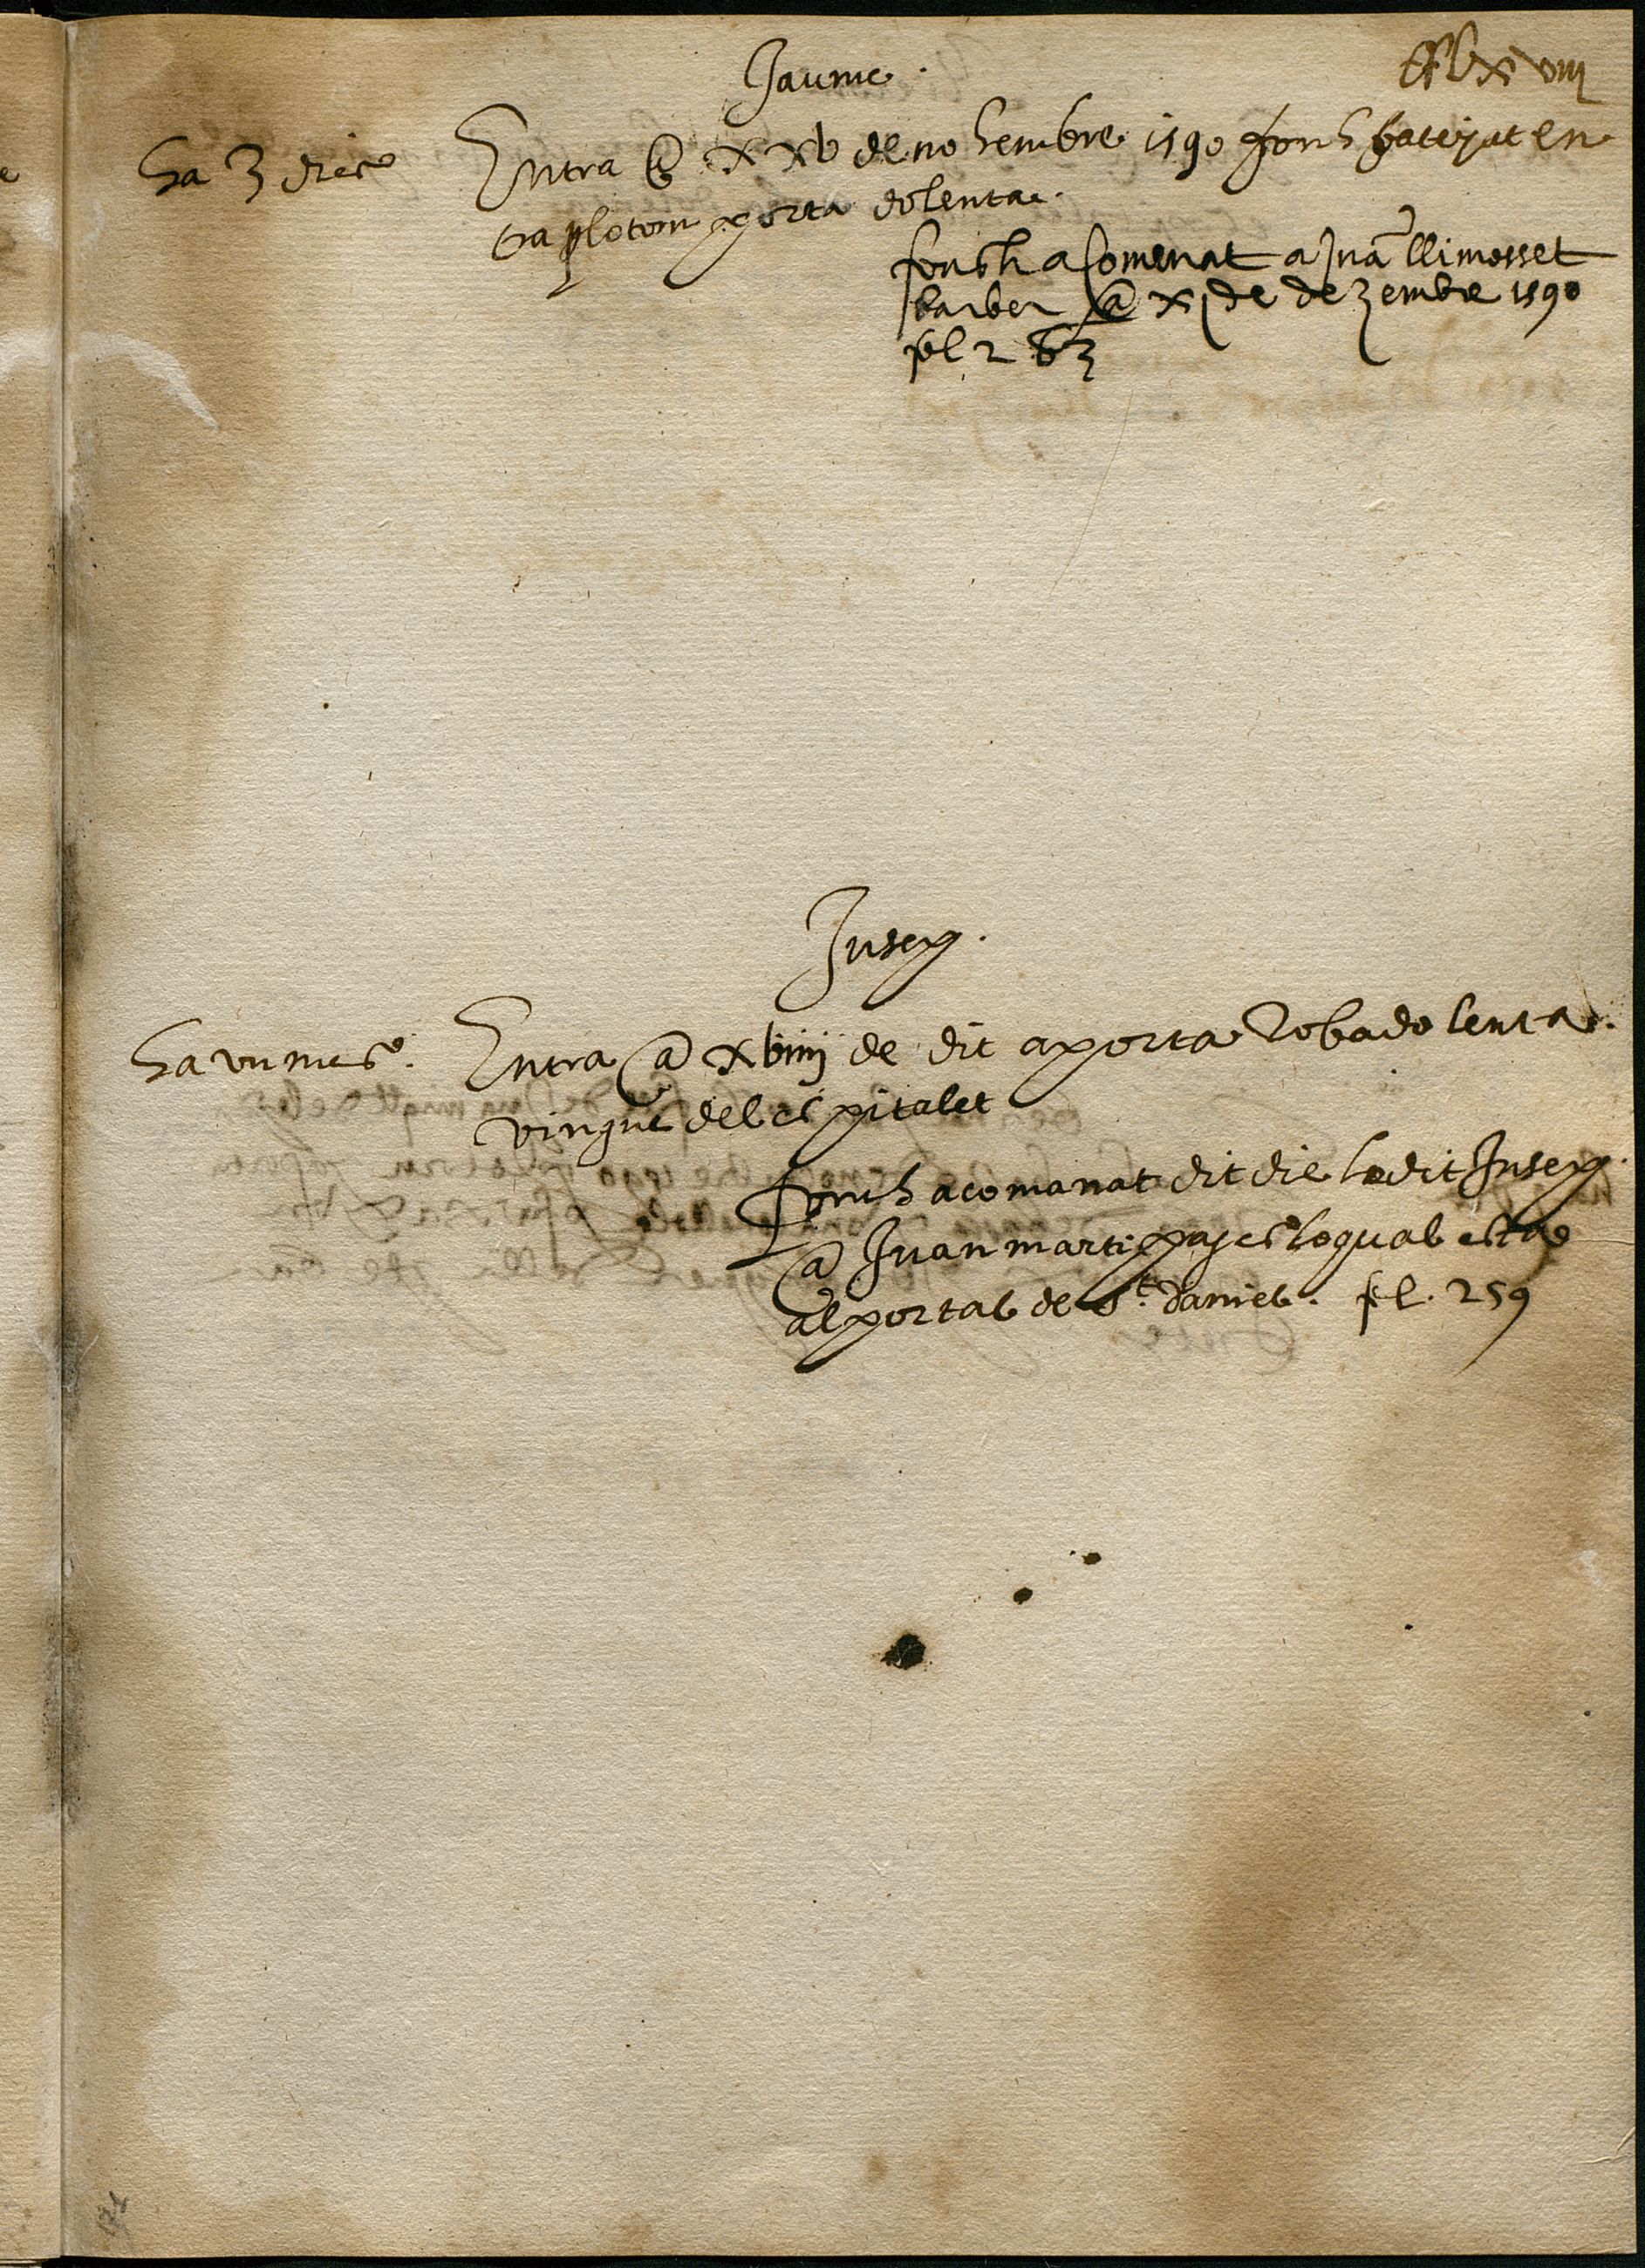 Jaume.
Ha 3 dies
Entra @ xxv de nohembre 1590 fonh batejat en
tra plotom porta dolenta.
fonch acomenat a Juā llimosset
barber @ xj de dezembre 1590
fol 263
Jusep.
Ha un mes.
Entra @ xviiij de dit aporta Roba dolenta.
vingue del espitalet
fonch acomanat dit die lo dit Jusep
@ Juan marti pajes lo qual esta
al portal de St. daniel. fol. 259